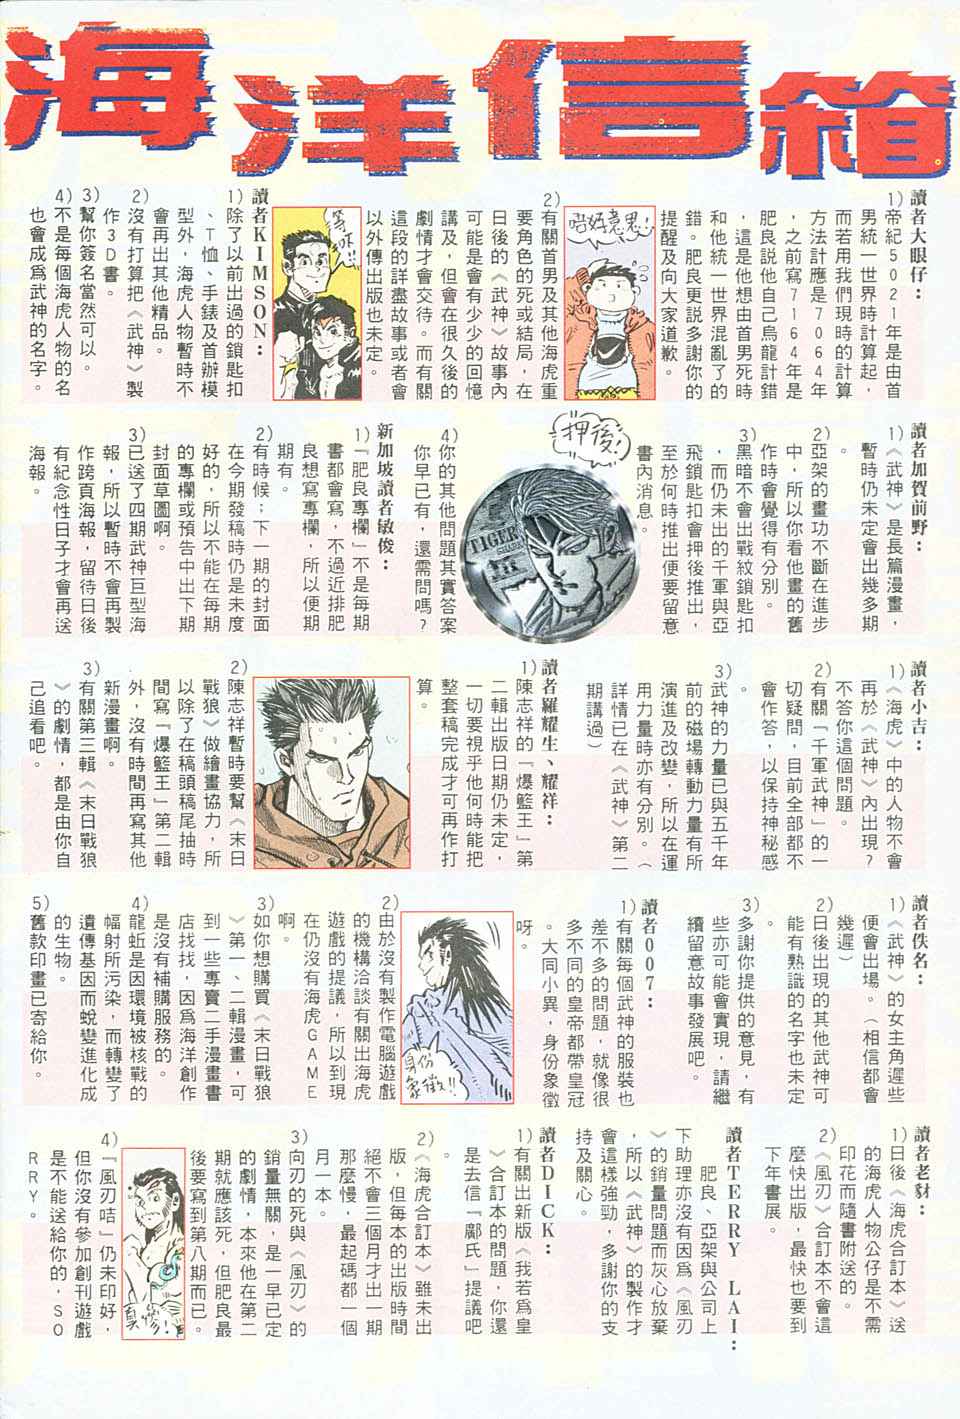 海洋信箱
讀者大眼仔：
1)帝紀5021年是由首
男統一世界時計算起，
而若用我們現時的計算
方法計應是7064年
，之前寫7164年是
肥良說他自己烏龍計錯
，這是他想由首男死時
和他統一世界混亂了的
錯。肥良更説多謝你的
提醒及向大家道歉。
唔好意思！
2)有關首男及其他海虎重
要角色的死或結局，在
日後的《武神》故事內
可能是會有少少的回憶
講及，但會在很久後的
劇情才會交待。而有關
這段的詳盡故事或者會
以外傳出版也未定。
等咗！！
讀者KIMSON：
1)除了以前出過的鎖匙扣
、T恤、手錶及首辦模
型外，海虎人物暫時不
會再出其他精品。
2)沒有打算把《武神》製
作3D書。
3)幫你簽名當然可以。
4)不是每個海虎人物的名
也會成爲武神的名字。
讀者加賀前野：
1)《武神》是長篇漫畫，
暫時仍未定會出幾多期
。
2)亞架的畫功不斷在進步
中，所以你看他畫的舊
作時會覺得有分別。
3)黑暗不會出戰紋鎖匙扣
，而仍未出的千軍與亞
飛鎖匙扣會押後推出，
至於何時推出便要留意
書內消息。
押後！
TIGER
SHARK
4)你的其他問題其實答案
你早已有，還需問嗎？
新加坡讀者敏俊：
1)「肥良專欄」不是每期
書都會寫，不過近排肥
良想寫專欄，所以便期
期有。
2)有時候；下一期的封面
在今期發稿時仍是未度
好的，所以不能在每期
的專欄或預告中出下期
封面草圖啊。
3)已送了四期武神巨型海
報，所以暫時不會再製
作跨頁海報，留待日後
有紀念性日子才會再送
海報。
讀者小吉：
1)《海虎》中的人物不會
再於《武神》內出現？
不答你這個問題。
2)有關「千軍武神」的一
切疑問，目前全部都不
會作答，以保持神秘感
。
3)武神的力量已與五千年
前的磁場轉動力量有所
演進及改變，所以在運
用力量時亦有分別。（
詳情已在《武神》第二
期講過）
讀者羅耀生、耀祥：
1)陳志祥的「爆籃王」第
二輯出版日期仍未定，
一切要視乎他何時能把
整套稿完成才可再作打
算。
2)陳志祥暫時要幫《末日
戰狼》做繪畫協力，所
以除了在稿頭稿尾抽時
間寫「爆籃王」第二輯
外，沒有時間再寫其他
新漫畫啊。
3)有關第三輯《末日戰狼
》的劇情，都是由你自
己追看吧。
讀者佚名：
1)《武神》的女主角遲些
便會出場。（相信都會
幾遲）
2)日後出現的其他武神可
能有熟識的名字也未定
。
3)多謝你提供的意見，有
些亦可能會實現，請繼
續留意故事發展吧。
讀者007：
1)有關每個武神的服裝也
差不多的問題，就像很
多不同的皇帝都帶皇冠
。大同小異，身份象徵
呀。
身份
象徵！！
2)由於沒有製作電腦遊戲
的機構洽談有關出海虎
遊戲的提議，所以到現
在仍沒有海虎GAME
啊。
3)如你想購買《末日戰狼
》第一、二輯漫畫，可
到一些專賣二手漫畫書
店找找，因爲海洋創作
是沒有補購服務的。
4)龍蚯是因環境被核戰的
幅射所污染，而轉變了
遺傳基因而蛻變進化成
的生物。
5)舊款印畫已寄給你。
讀者老豺：
1)日後《海虎合訂本》送
的海虎人物公仔是不需
印花而隨書附送的。
2)《風刃》合訂本不會這
麼快出版，最快也要到
下年書展。
讀者TERRY LAI：
肥良、亞架與公司上
下助理亦沒有因爲《風刃
》的銷量問題而灰心放棄
，所以《武神》的製作才
會這樣強勁，多謝你的支
持及關心。
讀者DICK：
1)有關出新版《我若爲皇
》合訂本的問題，你還
是去信「鄺氏」提議吧
。
2)《海虎合訂本》雖未出
版，但每本的出版時間
絕不會三個月才出一期
那麼慢，最起碼都一個
月一本。
3)向刃的死與《風刃》的
銷量無關，是一早已定
的劇情，本來他在第二
期就應該死，但肥良最
後要寫到第八期而已。
真慘！
4)「風刃咭」仍未印好，
但你沒有參加創刊遊戲
是不能送給你的，SO
RRY。